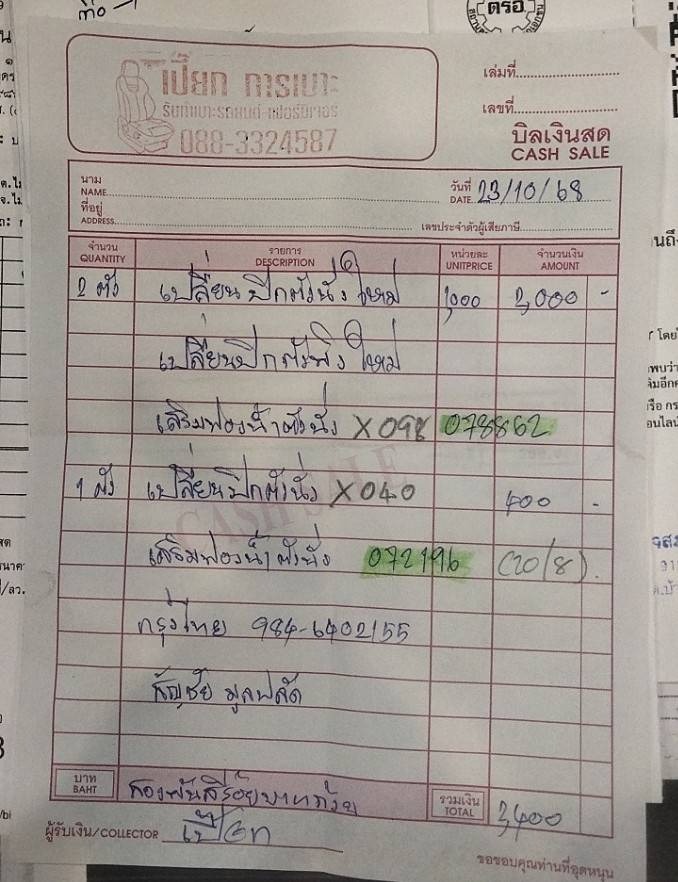 ตรอ
เปี๊ยก การเบาะ
รับทำเบาะรถยนต์-เฟอร์นิเจอร์
088-3324587
เล่มที่
เลขที่
บิลเงินสด
CASH SALE
นาม
NAME
วันที่ 23/10/68
DATE
ที่อยู่
ADDRESS
เลขประจำตัวผู้เสียภาษี
จำนวน รายการ หน่วยละ จำนวนเงิน
QUANTITY DESCRIPTION UNITPRICE AMOUNT
2 ตัว เปลี่ยนปีกตัวนั่งใหม่ 1,000 2,000 -
เปลี่ยนปีกตัวพิงใหม่
เสริมฟองน้ำตัวนั่ง X098 078862
1 ตัว เปลี่ยนปีกตัวนั่ง X040 400 -
CASH SALE
เสริมฟองน้ำตัวนั่ง 072196 (20/8).
กรุงไทย 984-6402155
ธัญชัย มูลปลัด
บาท สองพันสี่ร้อยบาทถ้วน รวมเงิน 2,400
BAHT TOTAL
ผู้รับเงิน/COLLECTOR เปี๊ยก
ขอขอบคุณท่านที่อุดหนุน